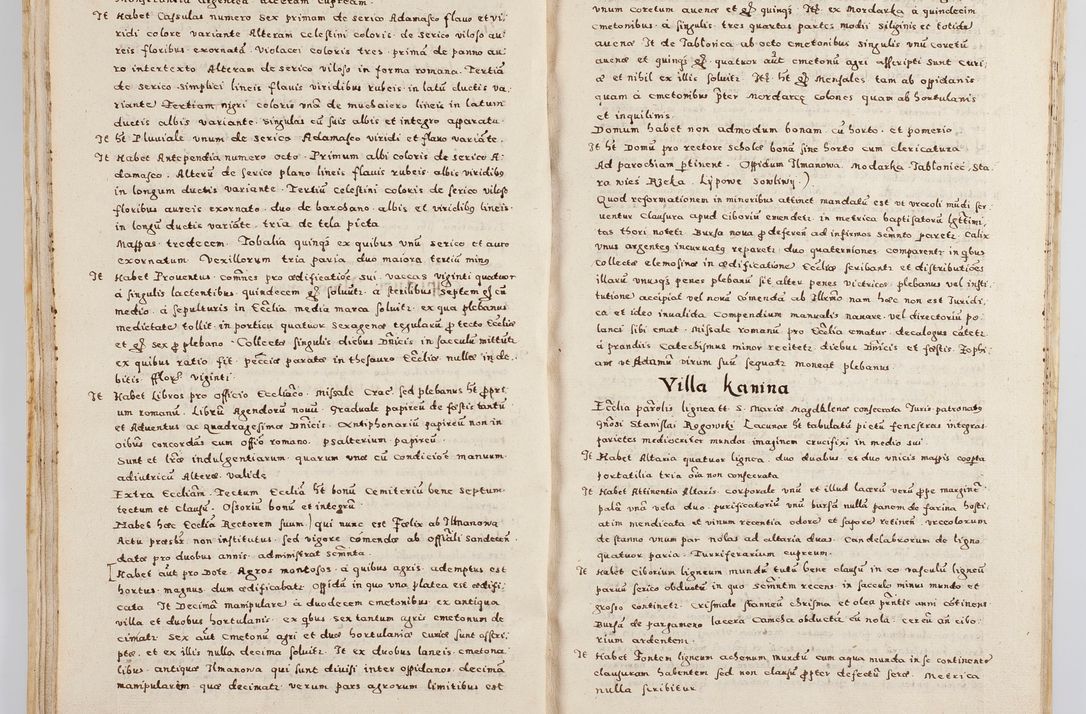 It Habet Casulas numero Sex primam de Serico Adamasco flauo et vi-
ridi colore variante Alteram celestini coloris de Serico viloso au-
reis floribus exornatã Violacei coloris tres primã de panno au-
ro intertexto Alteram de serico viloso in forma romana Tertiã
de Serico Simplici lineis flauis viridibus rubeis in latũ ductis va-
riante Tertiam nigri coloris vnã de muchaiero lineis in latum
ductis albis variante singulas cũ suis albis et integro apparatu
It ht Pluuiale vnum de Serico Adamasco viridi et flauo variãte
It Habet Antependia numero octo Primum albi coloris de serico A-
damasco Alterũ de Serico plano lineis flauis rubeis albis viridibs
in longum ductis variante Tertiũ celestini coloris de serico viloso
floribus aureis exornato duo de barchano albis et viridibs lineis
in longũ ductis variãte tria de tela picta
Mappas tredecem Tobalia quinqs ex quibus vnũ serico et auro
exornatum Vexillorum tria paria duo maiora tertiũ minq
It Habet Prouentus comẽs pro ædificatiõe sui vaccas viginti quatuor
á singulis lactentibus quindecem soluũt á sterilibus septem cũ
medio á sepulturis in Ecclia media marca soluitr ex qua plebanus
medietatẽ tollit in porticu quatuor Sexagenæ tegularũ p tecto Eccliæ
et sex p plebano Collecta singulis diebus Dnicis in sacculũ mittitr
ex quibus ratio fit pecciæ paratæ in thesauro Eccliæ nullæ in de-
bitis fflor viginti
It Habet Libros pro officio Eccliaco missale Crac sed plebanus ht ppri-
um romanũ Librũ Agendorũ nouũ Graduale papireũ de festis tantũ
et Aduentus ac quadragesimæ Dnicis Antiphonariũ papireũ non in
oibus concordãs cum offio romano psalterium papireũ
Sunt et lræ indulgentiarum quarum vna cũ conditiõe manuum
adiutricũ Altera valida
Extra Eccliam Tectum Eccliæ ht bonũ Cemiteriũ bene Septum
tectum et clausũ Ossoriũ bonũ et integrũ
Habet hæc Ecclia Rectorem suum qui nunc est Fælix ab Ilmanowa
Actu præsbr non institutus sed vigore comendæ ab offciali Sandecen
datæ pro duobus annis administrat scmnta
Habet aũt pro Dote Agros montosos á quibus agris ademptus est
hortus magnus dum ædificabatr Oppidũ in quo vna platea est ædifi-
cata It Decimã manipularẽ á duodecem cmetonibus ex antiqua
villa et duobus hortulanis ex qbus sex tantum agris cmetonum de-
cimatr Sex aũt cmetonũ agri et duæ hortulaniæ curiæ sunt asscri-
ptæ et ex illis nulla decima soluitr It ex duobus laneis cmetona-
libus antiquæ Ilmanowa qui sunt diuisi inter oppidanos decimã
manipularẽm quæ decimatr verum pars agrorum limitibus est
vnum coretum auenæ et quinqs It ex Mordarka á quindecim
cmetonibus á singulis tres quartas partes modii siliginis et totidẽ
auenæ It de Jablonica ab octo cmetonibus singulis vnũ coretũ
auenæ et quinqs quatuor aũt cmetonũ agri asscripti sunt curi-
æ et nihil ex illis soluitr It ht Mensales tam ab oppidanis
quam á cmetonibus pter Mordarcẽ colones quam ab hortulanis
et inquilinis
Domum habet non admodum bonam cũ horto et pomerio
It ht Domũ pro rectore scholæ bonũ sine horto cum clericatura
Ad parochiam ptinent Oppidum Ilmanowa Modarka Jabloniec Sta-
ra wies Rzeka Lypowe Sowliny
Quod reformationem in minoribus attinet mandatũ est vt vrceoli mũdi ser-
uentur Clausura apud Ciboriũ emendetr in metrica baptisatorũ lgttimi-
tas thori notetr Bursa noua p deferen ad infirmos Scmnto paretr Calix
vnus argenteq incuruatq reparetr duo quaterniones comparentr in qbus
collectæ elemosinæ in ædificatione Eccliæ scribantr et distributiões
illarũ vnusqs penes plebanũ sit alter penes victricos plebanus vel insti-
tutione accipiat vel nouã comẽda ab Illmo nam hæc non est Juridi-
ca et ideo inualida Compendium manualis nauare vel directoriũ po-
lanci sibi emat Missale romanũ pro Ecclia ematur decalogus cãtetr
á prandiis Catechismus minor recitetr diebus Dnicis et festis Zophi-
am vt Adamũ virum suũ sequatr moneat plebanus
Villa kanina
Ecclia parolis lignea tt S. Mariæ Magdalenæ consecrata Juris patronatq
gnosi Stanislai Rogowski Lacunar ht tabulatũ pictũ fenestras integras
parietes mediocriter mundos imaginem crucifixi in medio sui
It Habet Altaria quatuor lignea duo duabus et duo vnicis mappis coopta
portatilia tria oia non consecrata
It Habet Attinentia Altaris corporale vnũ et illud lacerũ verũ ppe marginẽ
palã vnã vela duo purificatoriũ vnũ bursã nullã panem de farina hosti-
atim mendicata et vinum recentia odore et sapore retinẽ vrceolorum
de stanno vnum par nolas ad altaria duas Candelabrorum de ligno
quatuor paria Turriferarium cupreum
It Habet Ciborium ligneum mundũ tutũ bene clausũ in eo vasculũ ligneũ
paruũ serico obductũ in quo scmntm recens in sacculo minus mundo et
grosso continetr Crismale stanneũ chrisma et olea pntis anni cõtinens
Bursã de pargameno lacera Camcha obducta cũ nola cereũ an cibo-
rium ardentem
It Habet Fontem ligneum achenum mundũ cum aqua munda in se continente
clausuram habentem sed non clausũ ppter defectũ seræ Metrica
nulla scribitur